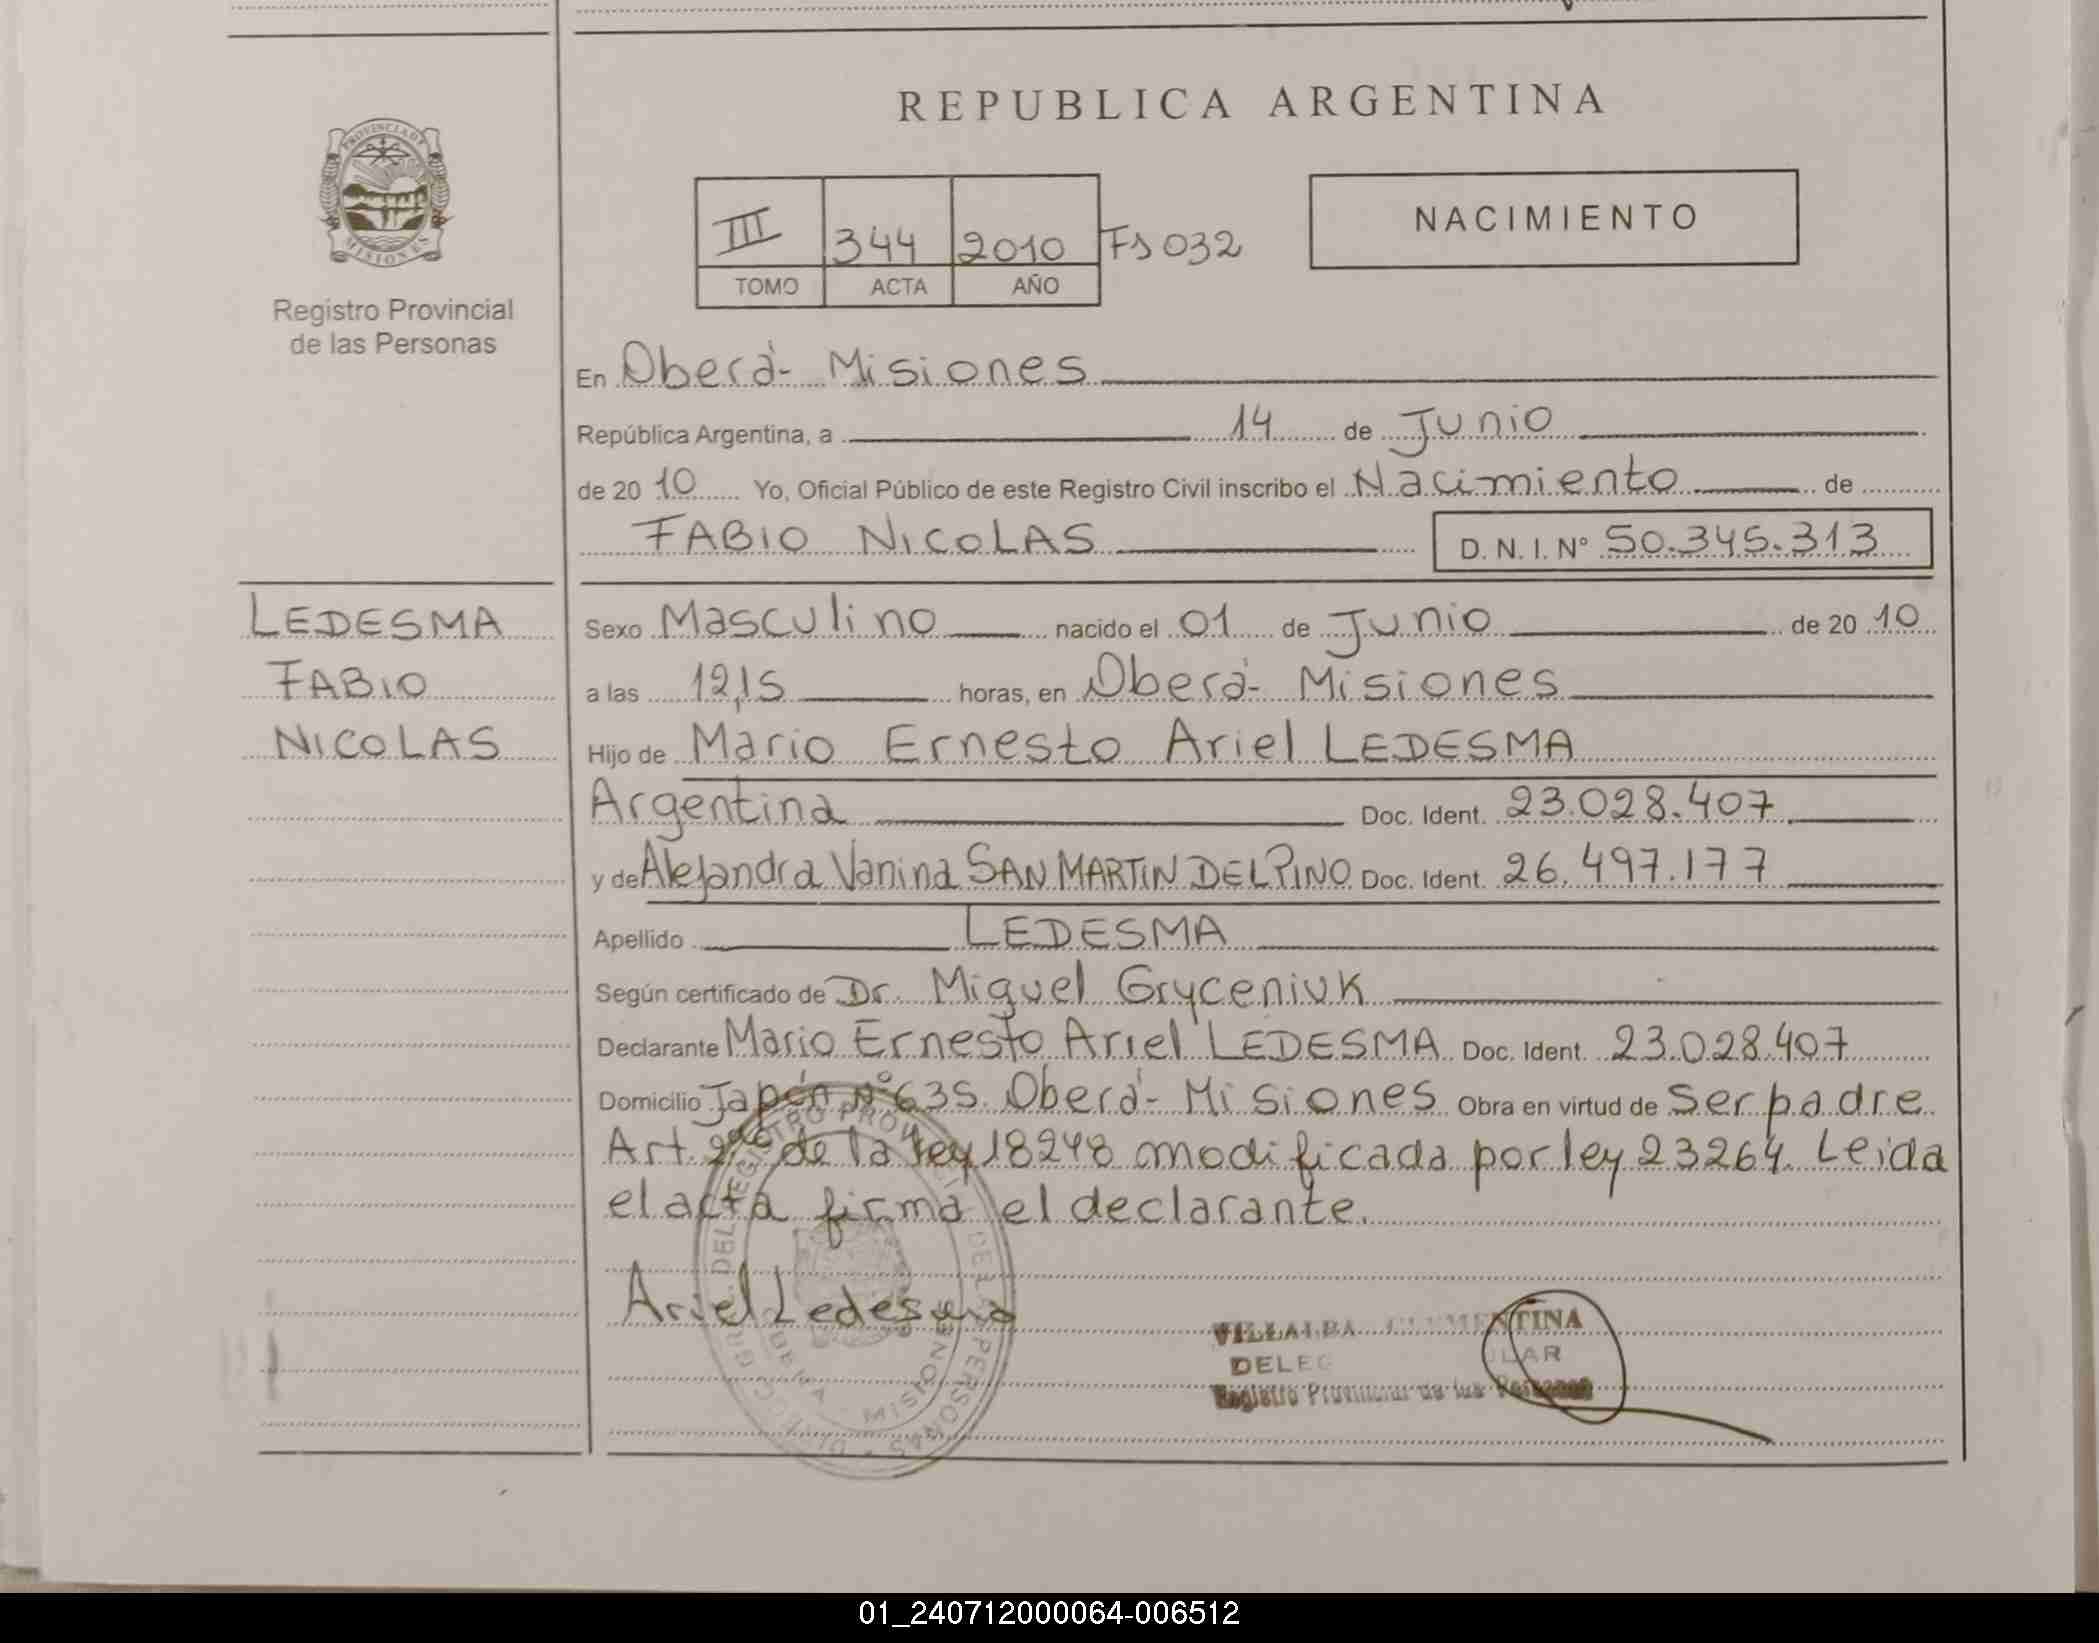 REPUBLICA ARGENTINA
PROVINCIA DE
MISIONES
Registro Provincial
de las Personas
III 344 2010 Fs 032
TOMO ACTA AÑO
NACIMIENTO
En Oberá- Misiones
República Argentina, a 14 de Junio
de 20 10 Yo, Oficial Público de este Registro Civil inscribo el Nacimiento de
FABIO NICOLAS D. N. I. N° 50.345.313
LEDESMA
FABIO
NICOLAS
Sexo Masculino nacido el 01 de Junio de 20 10
a las 12,15 horas, en Oberá- Misiones
Hijo de Mario Ernesto Ariel LEDESMA
Argentina Doc. Ident. 23.028.407
y de Alejandra Vanina SAN MARTIN DEL PINO Doc. Ident. 26.497.177
Apellido LEDESMA
Según certificado de Dr. Miguel Gryceniuk
Declarante Mario Ernesto Ariel LEDESMA Doc. Ident. 23.028.407
Domicilio Japón N° 635. Oberá- Misiones Obra en virtud de Ser padre
Art. de la ley 18248 modificada por ley 23264. Leida
el acta firma el declarante.
Ariel Ledesma
VILLALBA CLEMENTINA
DELEG ULAR
Registro Provincial de las Personas
REGISTRO PROVINCIAL DE LAS PERSONAS
MISIONES
01_240712000064-006512